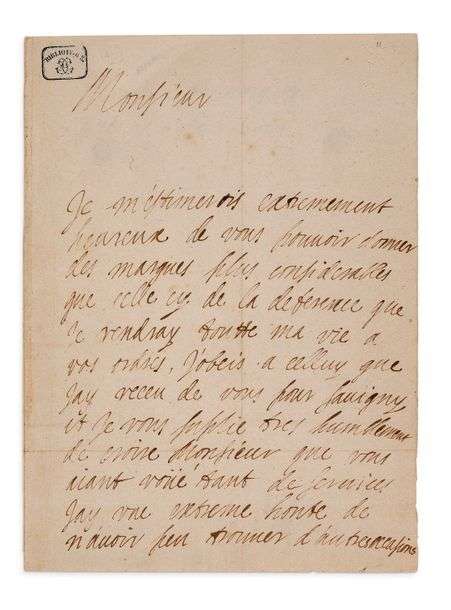 BIBLIOTHÈQUE
11
Monsieur
Je m'estimerois extremement
heureux de vous pouvoir donner
des marques plus considerables
que celle cy de la deference que
Je rendray toutte ma vie a
vos ordres, J'obeis a celluy que
Jay receu de vous pour Savigny
et Je vous suplie tres humblement
de croire Monsieur que vous
aiant voüé tant de services
Jay vne extreme honte de
n'avoir peu trouuer d'autres ocasions